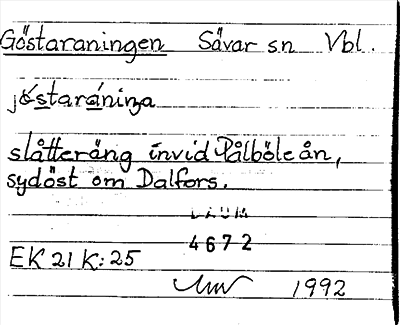 Göstaraningen Sävar sn Vbl.
jö́staránina
slåtteräng invid Pålböleån,
sydöst om Dalfors.
DAUM
4672
EK 21 K: 25
1992